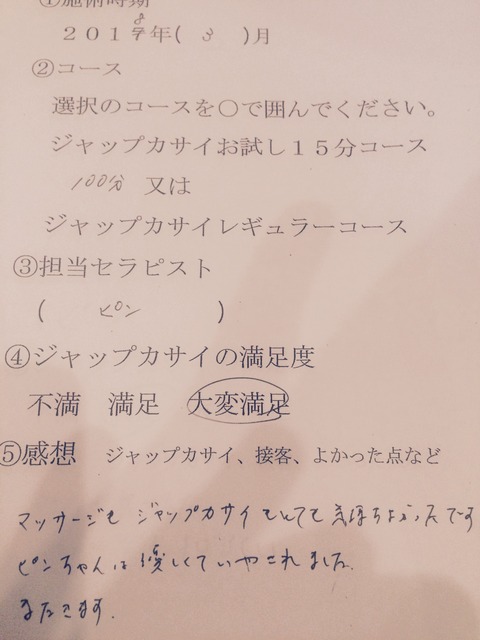 ①施術時期
2018年( 3 )月
②コース
選択のコースを○で囲んでください。
ジャップカサイお試し15分コース
100分 又は
ジャップカサイレギュラーコース
③担当セラピスト
( ピン )
④ジャップカサイの満足度
不満 満足 大変満足
⑤感想 ジャップカサイ、接客、よかった点など
マッサージも ジャップカサイもとても気持ちよかったです
ピンちゃんは優しくていやされました。
またきます.